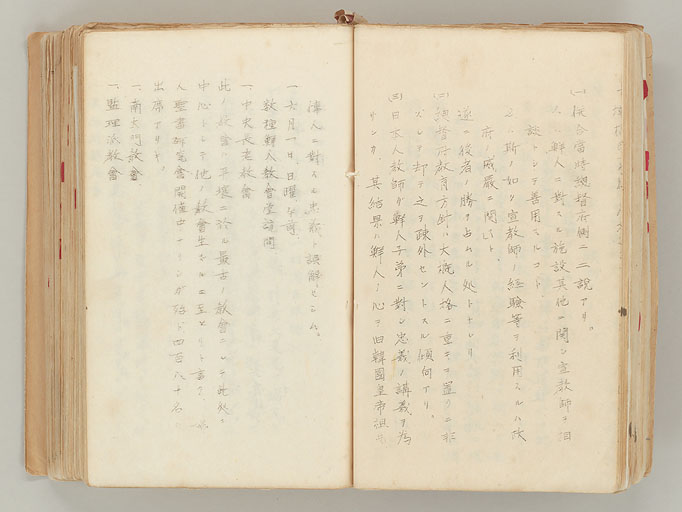 (一)併合當時總督府側ニ二説アリ。
1、鮮人ニ對スル施設其他ニ関シ宣教師ニ相
談シテ善用スルコト
2、斯ノ如ク宣教師ノ経験等ヲ利用スルハ政
府ノ威嚴ニ関スト
遂ニ後者ノ勝ヲ占ムル処トナレリ
(二)總督府教育方針ハ大概人格ニ重キヲ置クニ非
ズシテ却テ之ヲ疎外セントスル傾向アリ。
(三)日本人教師ガ鮮人子弟ニ對シ忠義ノ講義ヲ為
サンカ、其結果ハ鮮人ノ心ヲ旧韓國皇帝
ニ對スル忠義ト誤解セシム。
一、六月一日日曜、午前
数種鮮人教會堂訪問
一、中央長老教會
此ノ教會ハ平壌ニ於ル最古ノ教會ニシテ此然ヲ
中心トシテ他ノ教會生ズルニ至レリト言フ、
人聖書研究會開催中ナリシガ殆ド四百八十名
出席アリキ。
一、南大門教會
一、監理派教會